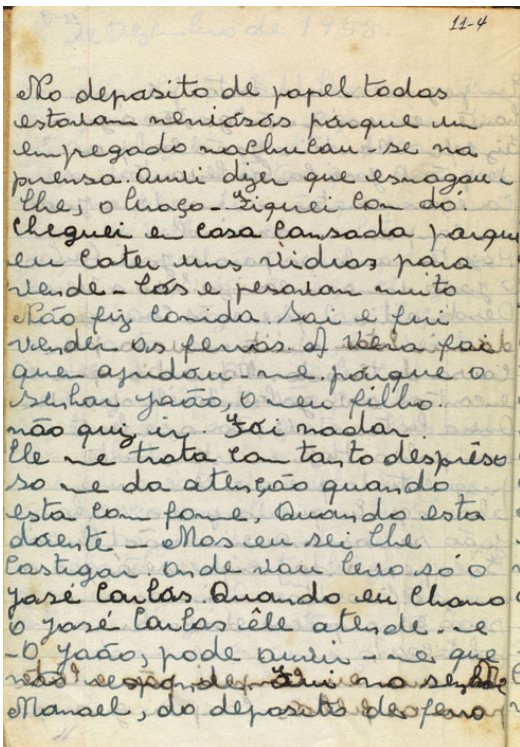 11-4
de dezembro de 1958
No deposito de papel todos
estavam nervosos porque um
empregado machucou-se na
prensa. Ouvi dizer que esmagou
lhe, o braço - Fiquei com dó.
Cheguei em casa cansada porque
eu catei uns vidros para
vende-los e pesavam muito
Não fiz comida. Sai e fui
vender os ferros. A Vera foi
quem ajudou me. porque o
senhor João, o meu filho
não quiz ir. Foi nadar.
Ele me trata com tanto despréso
só me da atenção quando
esta com fome, Quando esta
doente - Mas eu sei lhe
castigar onde vou levo só o
José Carlos. Quando eu chamo
o José Carlos êle atende-me
-O João, pode ouvir-me que
não responde. Fui no senhor
Manoel, do deposito de ferro